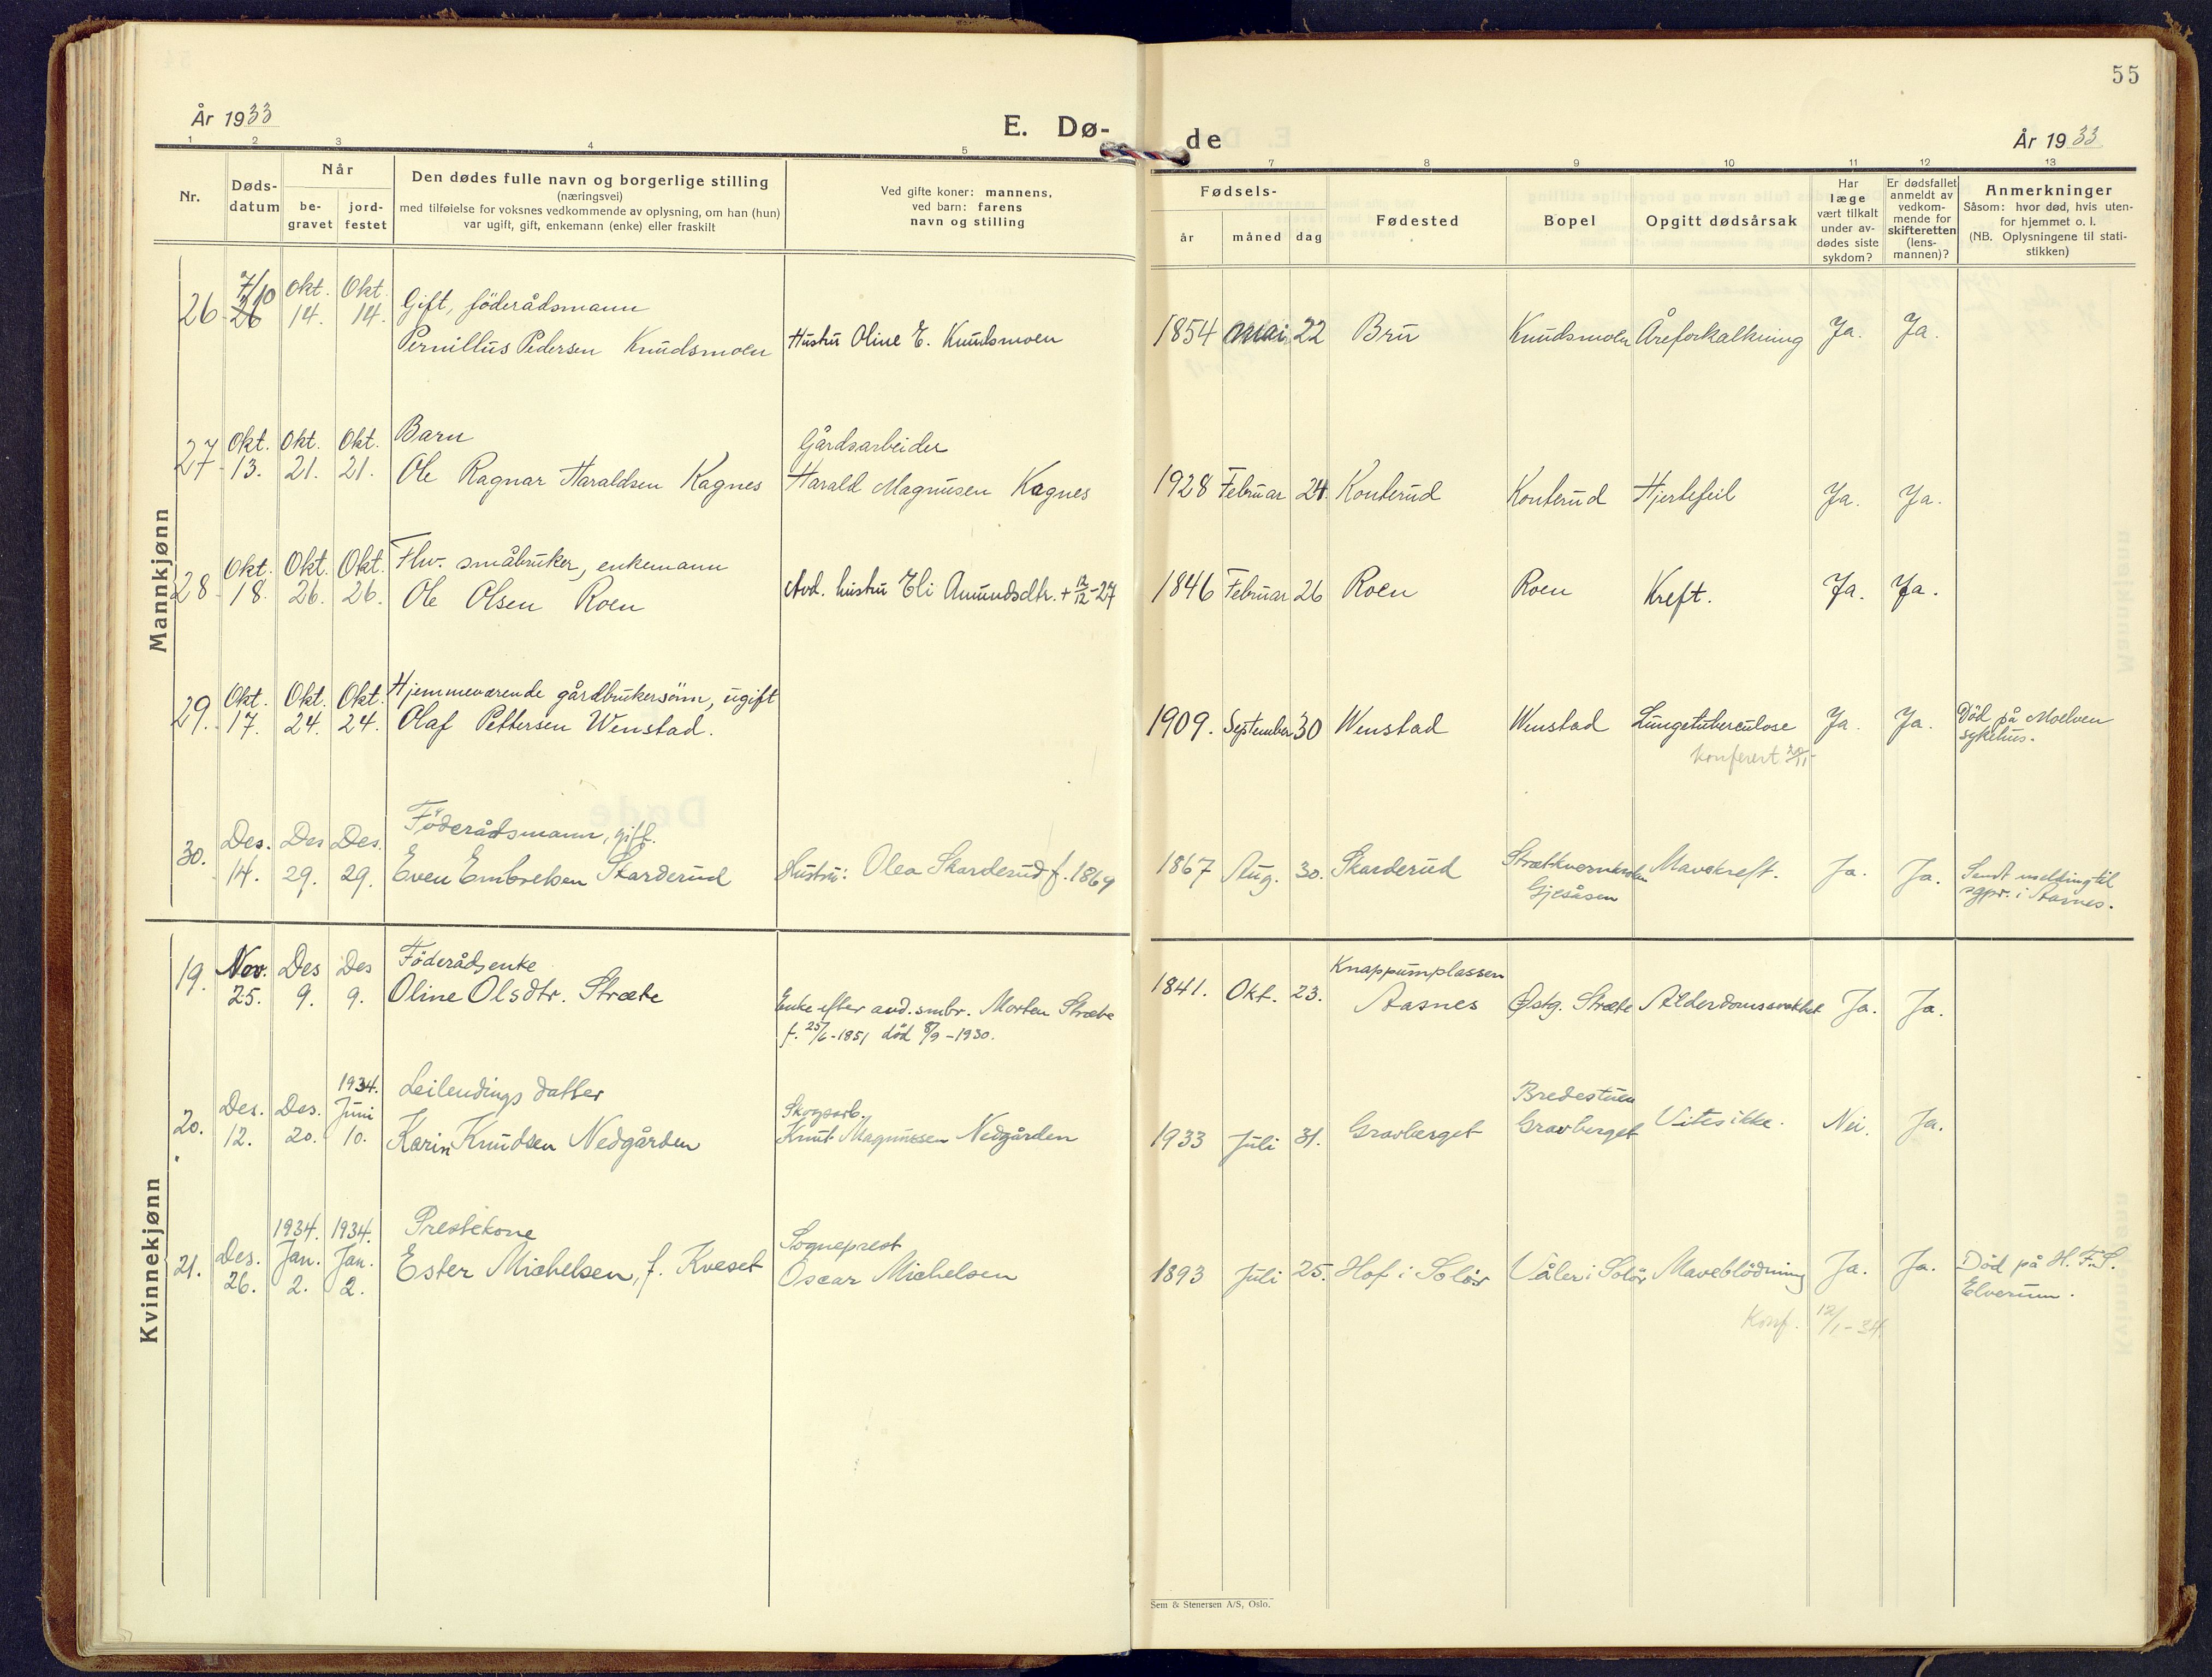 55
År 1933
E. Dø-
de
År 1933
1 2 3 4 5 7 8 9 10 11 12 13
Nr.
Døds-
datum
Når
be-
gravet
jord-
festet
Den dødes fulle navn og borgerlige stilling
(næringsvei)
med tilføielse for voksnes vedkommende av oplysning, om han (hun)
var ugift, gift, enkemann (enke) eller fraskilt
Ved gifte koner: mannens,
ved barn: farens
navn og stilling
Fødsels-
år
måned
dag
Fødested
Bopel
Opgitt dødsårsak
Har
læge
vært tilkalt
under av-
dødes siste
sykdom?
Er dødsfallet
anmeldt av
vedkom-
mende for
skifteretten
(lens-
mannen)?
Anmerkninger
Såsom: hvor død, hvis uten-
for hjemmet o. l.
(NB. Oplysningene til stati-
stikken)
Mannkjønn
7/10 Okt. Okt.
26 26 14. 14. Gift, föderådsmann
Pernillus Pedersen Knudsmoen Hustru Oline E. Knudsmoen 1854 Mai 22 Bru Knudsmoen Åreforkalkning Ja. Ja.
Okt. Okt. Okt. Barn Gårdsarbeider
27 13. 21. 21. Ole Ragnar Haraldsen Kagnes Harald Magnusen Kagnes 1928 Februar 24. Konterud Konterud Hjertefeil Ja. Ja.
Okt. Okt. Okt. Fhv. småbruker, enkemann
28 18. 26. 26. Ole Olsen Roen Avd. hustru Eli Amundsdtr. + 12/12-27 1846 Februar 26 Roen Roen Kreft. Ja. Ja.
Okt. Okt. Okt. Hjemmeværende gårdbrukersönn, ugift
29. 17. 24. 24. Olaf Pettersen Wenstad. 1909. September 30 Wenstad Wenstad Lungetuberculose Ja. Ja. Död på Moelven
sykehus.
konferert 20/11
Des. Des Des. Föderådsmann, gift.
30. 14. 29. 29. Even Embretsen Skarderud Hustru: Olea Skarderud f. 1869 1867 Aug. 30. Skarderud Strætkvernkroken
Gjesåsen
Mavekreft. Ja. Ja. Sendt melding til
sgpr. i Aasnes.
Kvinnekjønn
Nov. Des Des Föderådsenke
19. 25. 9. 9. Oline Olsdtr. Stræte Enke efter avd. smbr. Morten Stræte
f. 25/6-1851 död 8/9-1930.
1841. Okt. 23. Knappumplassen
Aasnes Østg. Stræte Alderdomssvakhet Ja. Ja.
1934.
Des. Des. Juni Leilendings datter
20. 12. 20. 10. Karin Knudsen Nedgården Skogsarb.
Knut Magnussen Nedgården 1933 Juli 31. Gravberget Bredestuen
Gravberget Vites ikke. Nei. Ja.
1934. 1934. Prestekone
Des. Jan. Jan.
21. 26. 2. 2. Ester Michelsen, f. Kveset Sogneprest
Oscar Michelsen 1893 Juli 25. Hof i Solör Våler i Solör Maveblödning Ja. Ja. Död på H. F. S.
Elverum.
Konf. 12/1-34.
Sem & Stenersen A/S, Oslo.